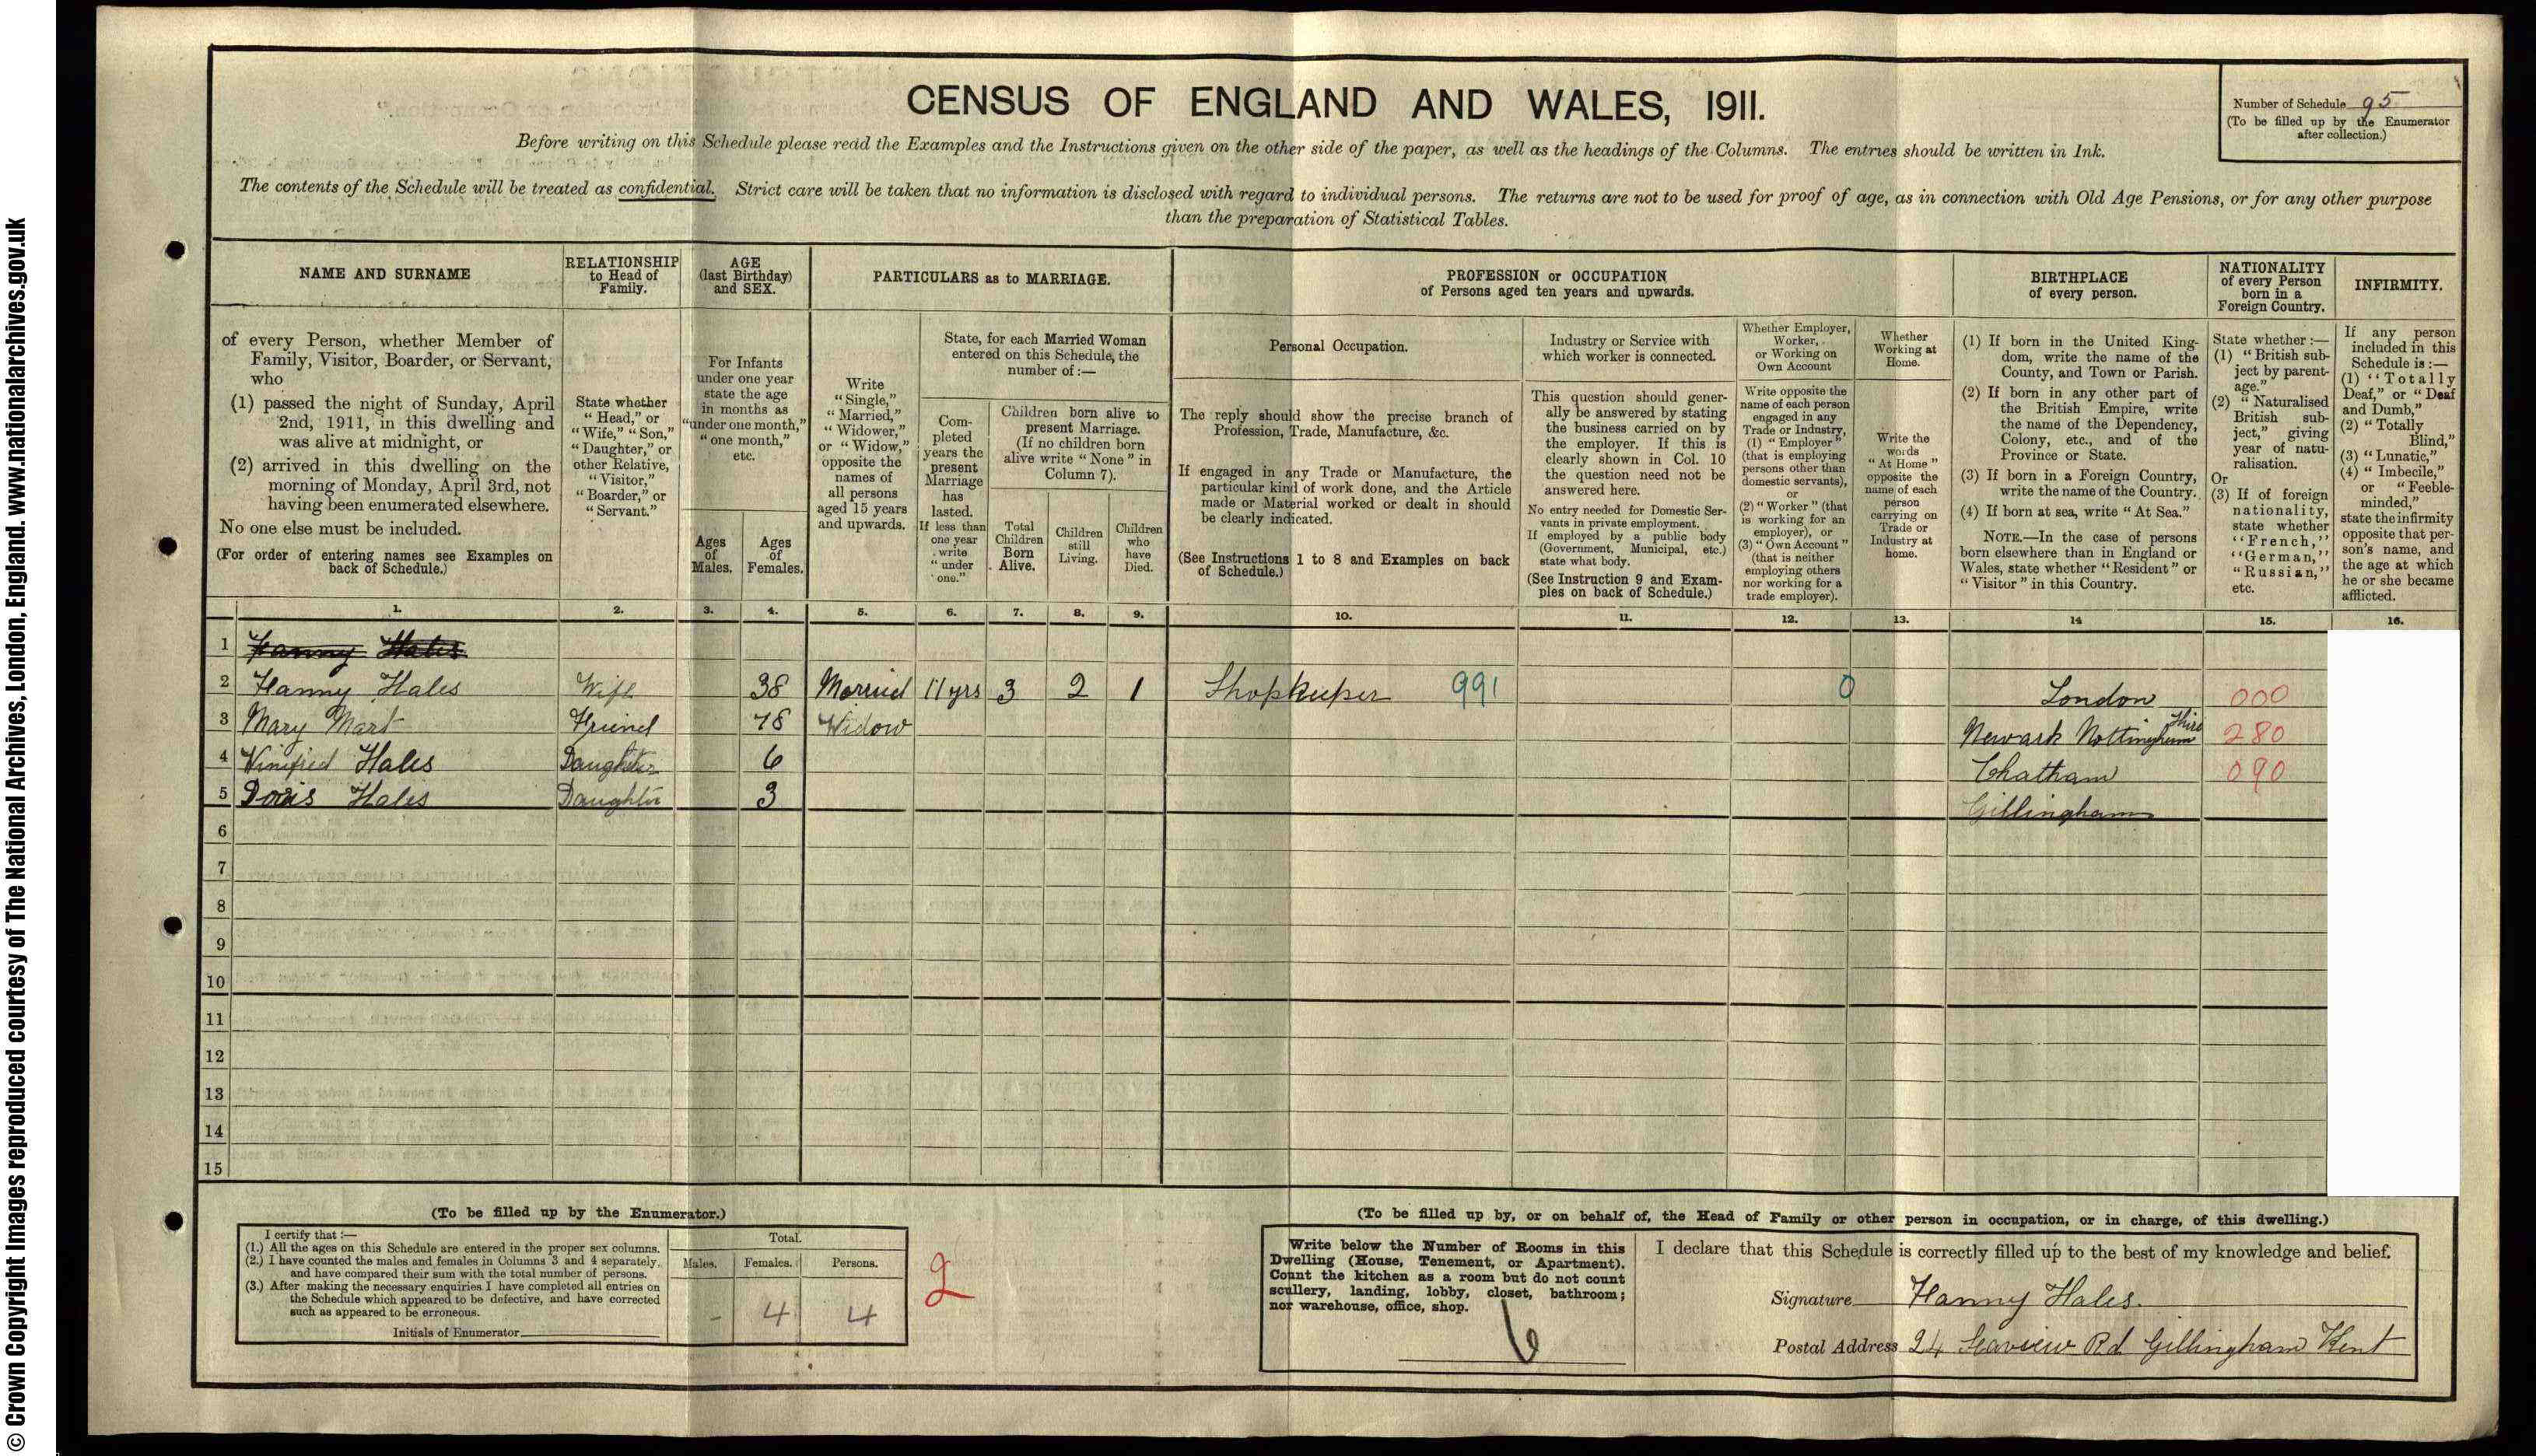 © Crown Copyright Images reproduced courtesy of The National Archives, London, England. www.nationalarchives.gov.uk
CENSUS OF ENGLAND AND WALES, 1911.
Number of Schedule 95
(To be filled up by the Enumerator
after collection.)
Before writing on this Schedule please read the Examples and the Instructions given on the other side of the paper, as well as the headings of the Columns. The entries should be written in Ink.
The contents of the Schedule will be treated as confidential. Strict care will be taken that no information is disclosed with regard to individual persons. The returns are not to be used for proof of age, as in connection with Old Age Pensions, or for any other purpose
than the preparation of Statistical Tables.
NAME AND SURNAME
of every Person, whether Member of
Family, Visitor, Boarder, or Servant,
who
(1) passed the night of Sunday, April
2nd, 1911, in this dwelling and
was alive at midnight, or
(2) arrived in this dwelling on the
morning of Monday, April 3rd, not
having been enumerated elsewhere.
No one else must be included.
(For order of entering names see Examples on
back of Schedule.)
1.
RELATIONSHIP
to Head of
Family.
State whether
"Head," or
"Wife," "Son,"
"Daughter," or
other Relative,
"Visitor,"
"Boarder," or
"Servant."
2.
AGE
(last Birthday)
and SEX.
For Infants
under one year
state the age
in months as
"under one month,"
"one month,"
etc.
Ages
of
Males.
3.
Ages
of
Females.
4.
PARTICULARS as to MARRIAGE.
Write
"Single,"
"Married,"
"Widower,"
or "Widow,"
opposite the
names of
all persons
aged 15 years
and upwards.
5.
State, for each Married Woman
entered on this Schedule, the
number of :—
Com-
pleted
years the
present
Marriage
has
lasted.
If less than
one year
write
"under
one."
6.
Children born alive to
present Marriage.
(If no children born
alive write "None" in
Column 7).
Total
Children
Born
Alive.
7.
Children
still
Living.
8.
Children
who
have
Died.
9.
PROFESSION or OCCUPATION
of Persons aged ten years and upwards.
Personal Occupation.
The reply should show the precise branch of
Profession, Trade, Manufacture, &c.
If engaged in any Trade or Manufacture, the
particular kind of work done, and the Article
made or Material worked or dealt in should
be clearly indicated.
(See Instructions 1 to 8 and Examples on back
of Schedule.)
10.
Industry or Service with
which worker is connected.
This question should gener-
ally be answered by stating
the business carried on by
the employer. If this is
clearly shown in Col. 10
the question need not be
answered here.
No entry needed for Domestic Ser-
vants in private employment.
If employed by a public body
(Government, Municipal, etc.)
state what body.
(See Instruction 9 and Exam-
ples on back of Schedule.)
11.
Whether Employer,
Worker,
or Working on
Own Account
Write opposite the
name of each person
engaged in any
Trade or Industry,
(1) "Employer"
(that is employing
persons other than
domestic servants),
or
(2) "Worker" (that
is working for an
employer), or
(3) "Own Account"
(that is neither
employing others
nor working for a
trade employer).
12.
Whether
Working at
Home.
Write the
words
"At Home"
opposite the
name of each
person
carrying on
Trade or
Industry at
home.
13.
BIRTHPLACE
of every person.
(1) If born in the United King-
dom, write the name of the
County, and Town or Parish.
(2) If born in any other part of
the British Empire, write
the name of the Dependency,
Colony, etc., and of the
Province or State.
(3) If born in a Foreign Country,
write the name of the Country.
(4) If born at sea, write "At Sea."
NOTE.—In the case of persons
born elsewhere than in England or
Wales, state whether "Resident" or
"Visitor" in this Country.
14
NATIONALITY
of every Person
born in a
Foreign Country.
State whether :—
(1) "British sub-
ject by parent-
age."
(2) "Naturalised
British sub-
ject," giving
year of natu-
ralisation.
Or
(3) If of foreign
nationality,
state whether
"French,"
"German,"
"Russian,"
etc.
15.
INFIRMITY.
If any person
included in this
Schedule is :—
(1) "Totally
Deaf," or "Deaf
and Dumb,"
(2) "Totally
Blind,"
(3) "Lunatic,"
(4) "Imbecile,"
or "Feeble-
minded,"
state the infirmity
opposite that per-
son's name, and
the age at which
he or she became
afflicted.
16.
1 Fanny Hales
2 Fanny Hales Wife 38 Married 11 yrs 3 2 1 Shopkeeper 991 0 London 000
3 Mary Mart Friend 78 Widow Newark Nottingham Shire 280
4 Winifred Hales Daughter 6 Chatham 090
5 Doris Hales Daughter 3 Gillingham
6
7
8
9
10
11
12
13
14
15
(To be filled up by the Enumerator.)
I certify that :—
(1.) All the ages on this Schedule are entered in the proper sex columns.
(2.) I have counted the males and females in Columns 3 and 4 separately,
and have compared their sum with the total number of persons.
(3.) After making the necessary enquiries I have completed all entries on
the Schedule which appeared to be defective, and have corrected
such as appeared to be erroneous.
Initials of Enumerator
Total.
Males. Females. Persons.
- 4 4
2
(To be filled up by, or on behalf of, the Head of Family or other person in occupation, or in charge, of this dwelling.)
Write below the Number of Rooms in this
Dwelling (House, Tenement, or Apartment).
Count the kitchen as a room but do not count
scullery, landing, lobby, closet, bathroom;
nor warehouse, office, shop.
6
I declare that this Schedule is correctly filled up to the best of my knowledge and belief.
Signature Fanny Hales.
Postal Address 24 Seaview Rd Gillingham Kent